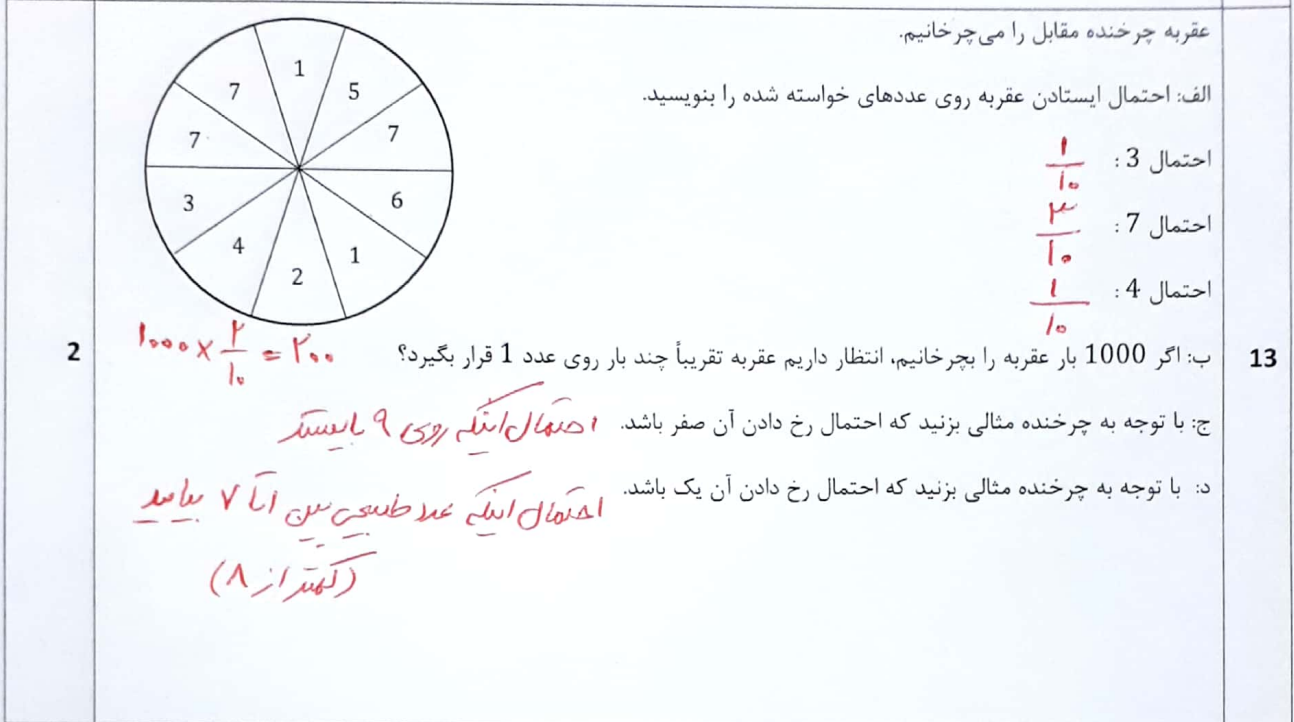 13
2
عقربه چرخنده مقابل را می‌چرخانیم.
الف: احتمال ایستادن عقربه روی عددهای خواسته شده را بنویسید.
احتمال 3 : ۱/۱۰
احتمال 7 : ۳/۱۰
احتمال 4 : ۱/۱۰
1
5
7
6
1
2
4
3
7
7
ب: اگر 1000 بار عقربه را بچرخانیم، انتظار داریم عقربه تقریباً چند بار روی عدد 1 قرار بگیرد؟
۱۰۰۰ × ۲/۱۰ = ۲۰۰
ج: با توجه به چرخنده مثالی بزنید که احتمال رخ دادن آن صفر باشد. احتمال اینکه روی ۹ بایستد
د: با توجه به چرخنده مثالی بزنید که احتمال رخ دادن آن یک باشد. احتمال اینکه عدد طبیعی بین ۱ تا ۷ بیاید
(کمتر از ۸)